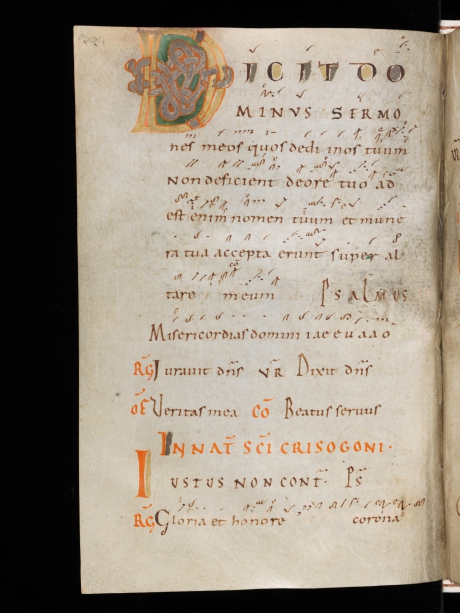 DICIT DO
MINUS SERMO
nes meos quos dedi in os tuum
non deficient de ore tuo ad
est enim nomen tuum et mune
ra tua accepta erunt super al
tare meum PSALMUS
Misericordias domini iaeeuaao
RG Iuravit dns VR Dixit dns
OF Veritas mea CO Beatus servus
IN NAT SCI CRISOGONI.
IUSTUS NON CONT. PS
RG Gloria et honore corona